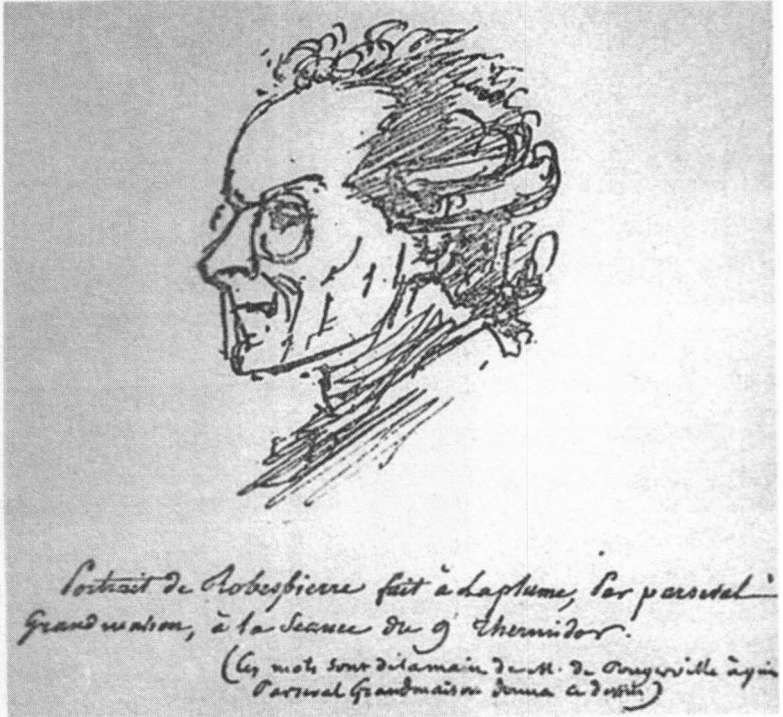 Portrait de Robespierre fait à Laplume, Par parseval-
Grandmaison, à la Séance du 9 Thermidor.
(Ces mots sont de la main de M. de Rougerville à qui
Parseval Grandmaison donna ce dessin)